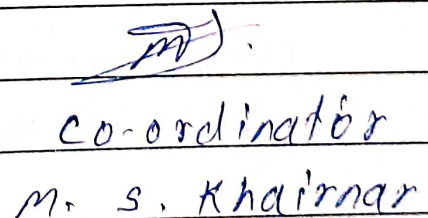 co-ordinator
M. S. Khairnar